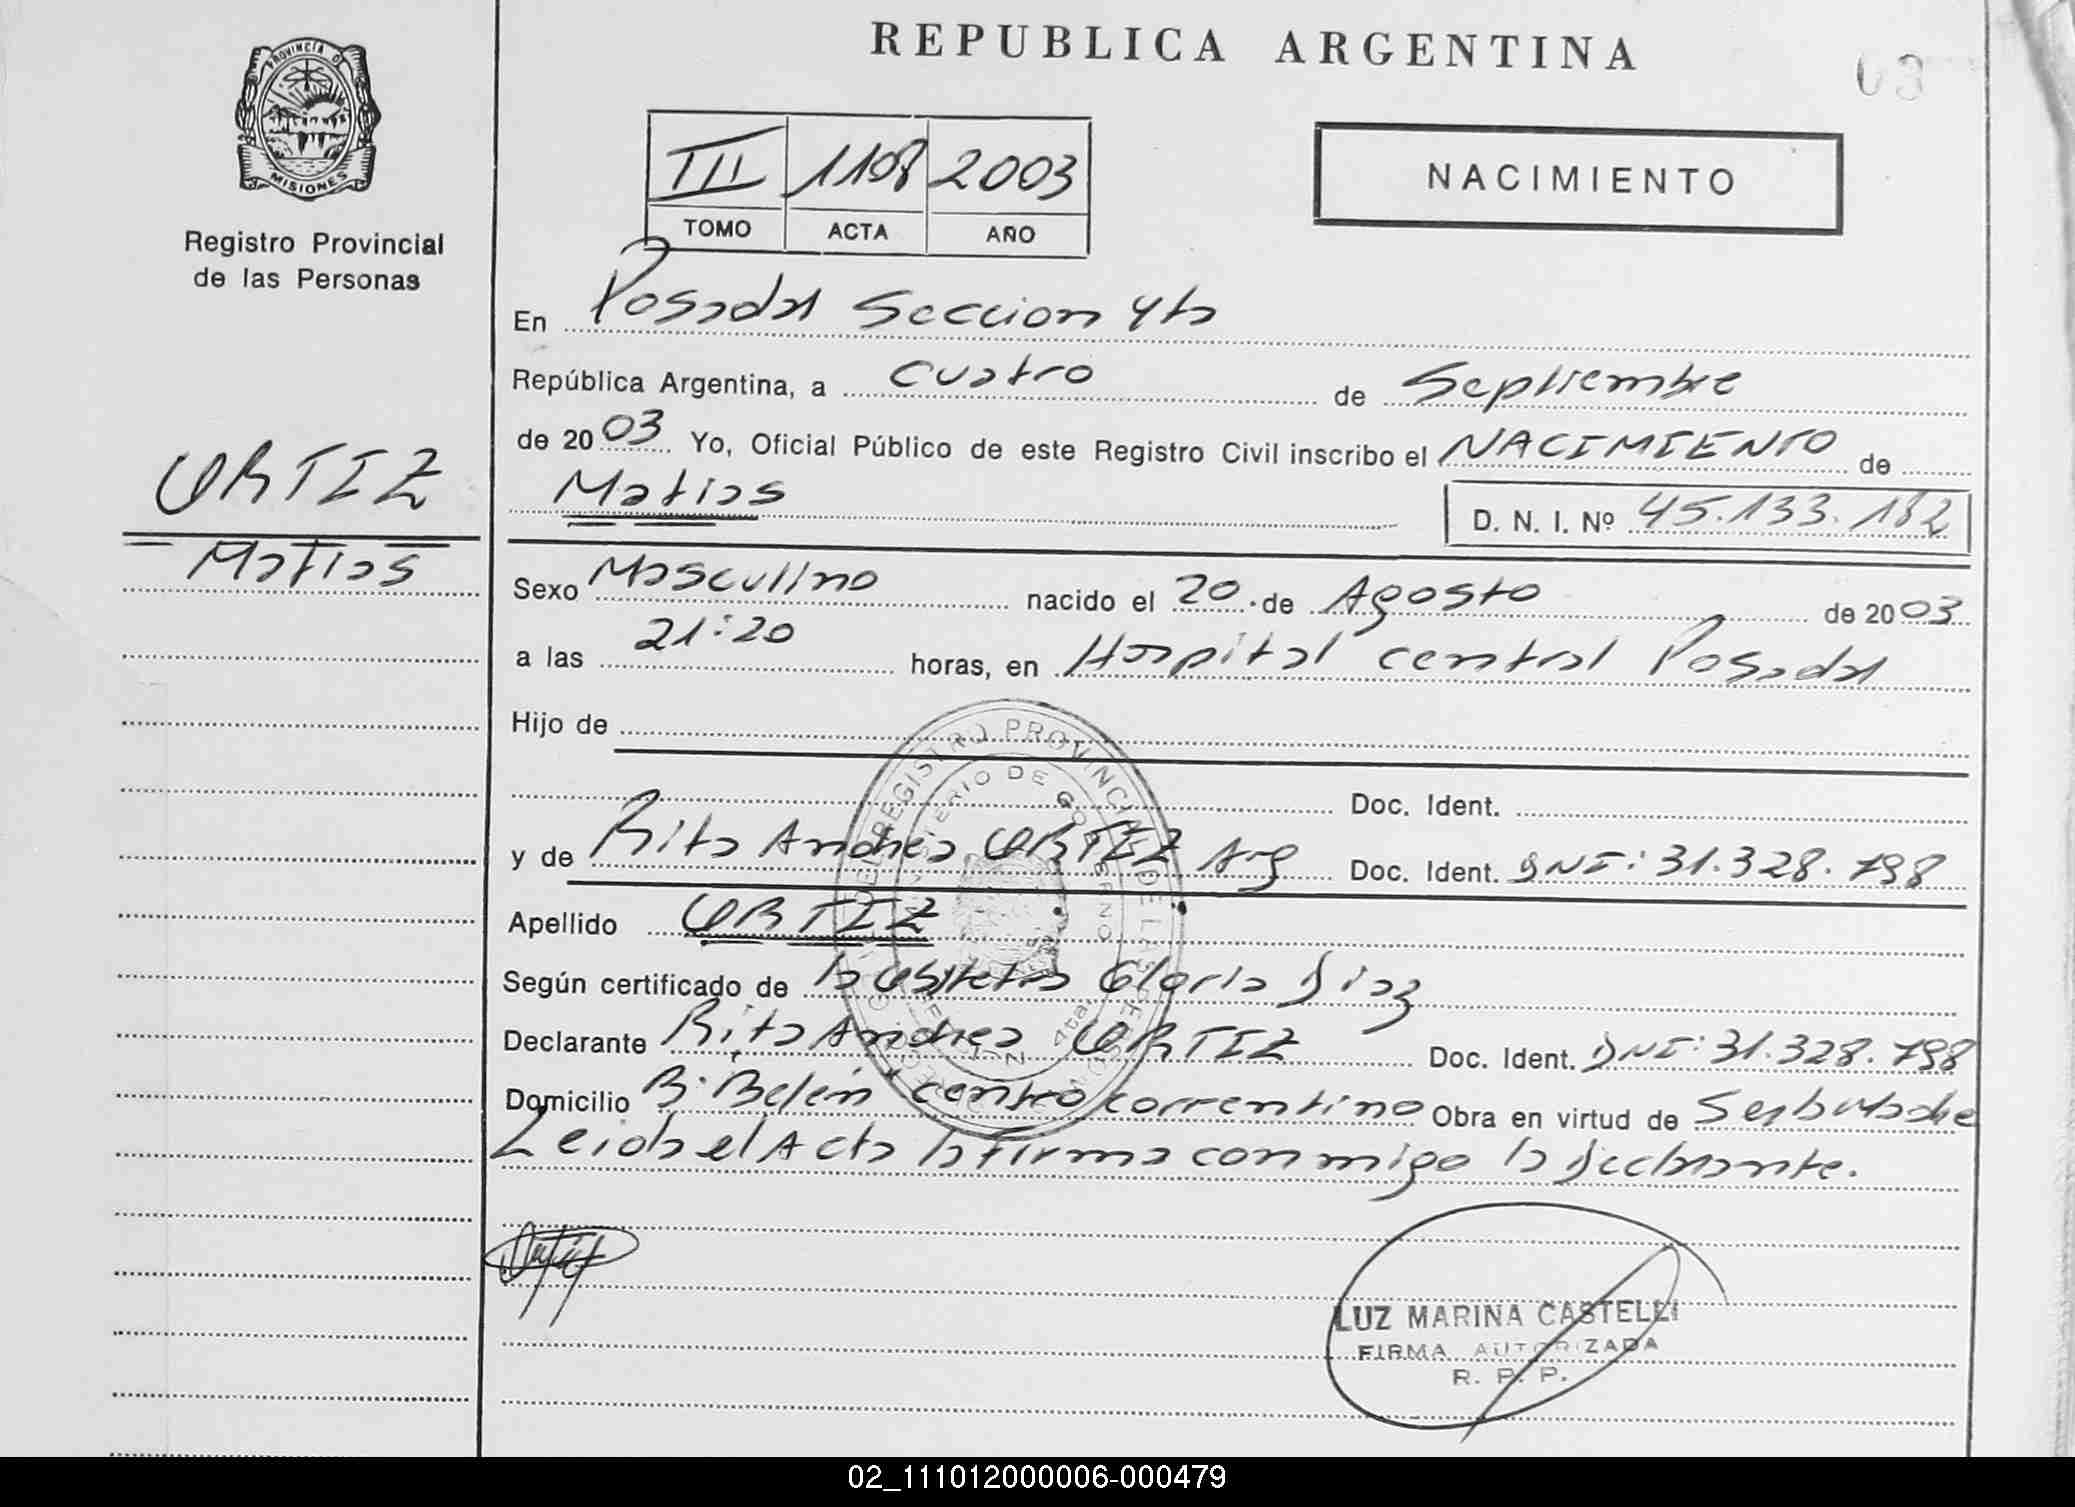 REPUBLICA ARGENTINA
03
PROVINCIA DE
MISIONES
Registro Provincial
de las Personas
III 1108 2003
TOMO ACTA AÑO
NACIMIENTO
En Posadas Seccion 4ta
República Argentina, a cuatro de Septiembre
de 2003 Yo, Oficial Público de este Registro Civil inscribo el NACIMIENTO de
Matias D. N. I. Nº 45.133.182
ORTIZ
Matias
Sexo Masculino nacido el 20 de Agosto de 2003
a las 21:20 horas, en Hospital central Posadas
Hijo de
Doc. Ident.
y de Rita Andrea ORTIZ Arg Doc. Ident. DNI: 31.328.798
Apellido ORTIZ
Según certificado de la Obstetra Gloria Diaz
Declarante Rita Andrea ORTIZ Doc. Ident. DNI: 31.328.798
Domicilio B. Belén centro correntino Obra en virtud de Ser la madre
Leida el Acta la firma conmigo la declarante.
Ortiz
LUZ MARINA CASTELLI
FIRMA AUTORIZADA
R. P. P.
02_111012000006-000479